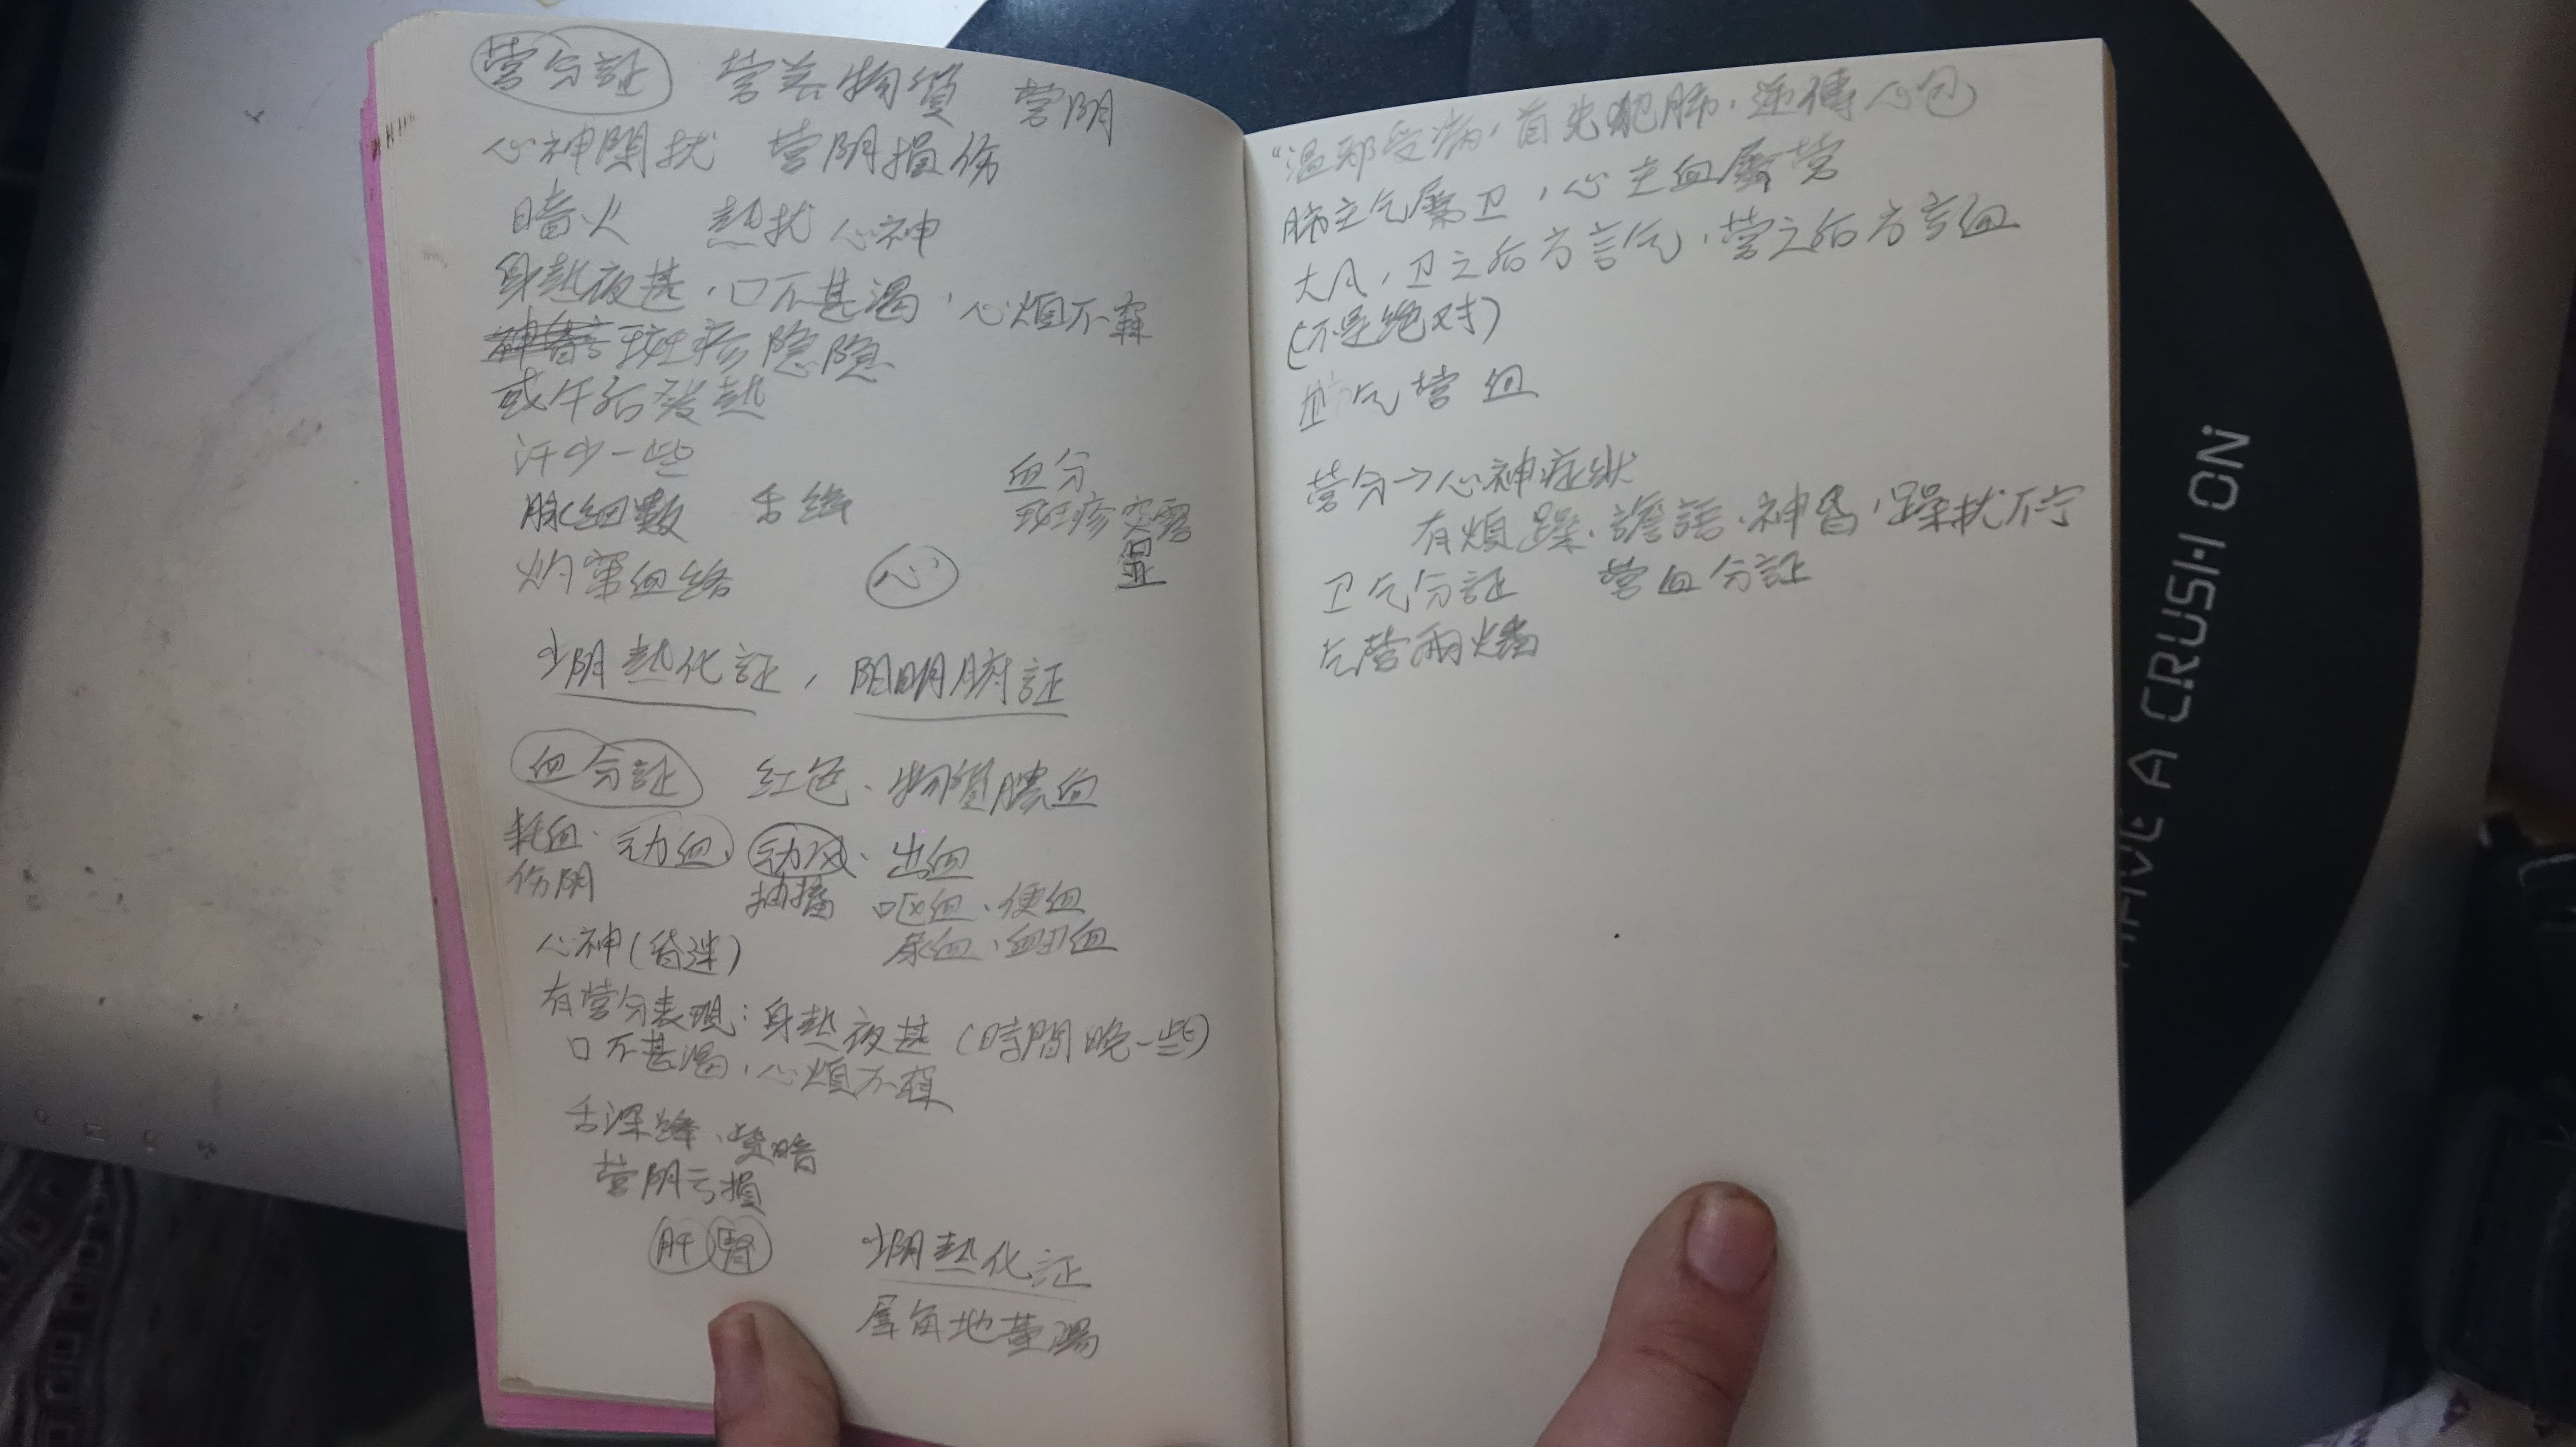 营分証 営养物質 营阴
心神閙扰 营阴損伤
暗火 热扰心神
身热夜甚，口不甚渴，心煩不寐
斑疹隐隐
或午后发热
汗少一些
脉细數 舌绛
血分
斑疹突露
显
灼䓖血络 心
少阴热化証，阳明腑証
血分証 红色、物質 血
耗血、动血、动风、出血
伤阴 抽搐 呕血、便血
尿血、衄血
心神（昏迷）
有营分表现：身热夜甚（時間晚一些）
口不甚渴，心煩不寐
舌深绛、紫暗
营阴亏損
肝腎 少阴热化証
犀角地黄湯
“温邪受病，首先犯肺，逆傳心包
肺主气属卫，心主血属营
大凡，卫之后方言气，营之后方言血
（不是绝对）
卫气营血
营分→心神症状
有煩躁、譫語、神昏，躁扰不宁
卫气分証 营血分証
气营兩燔
HAVE A CRUSH ON